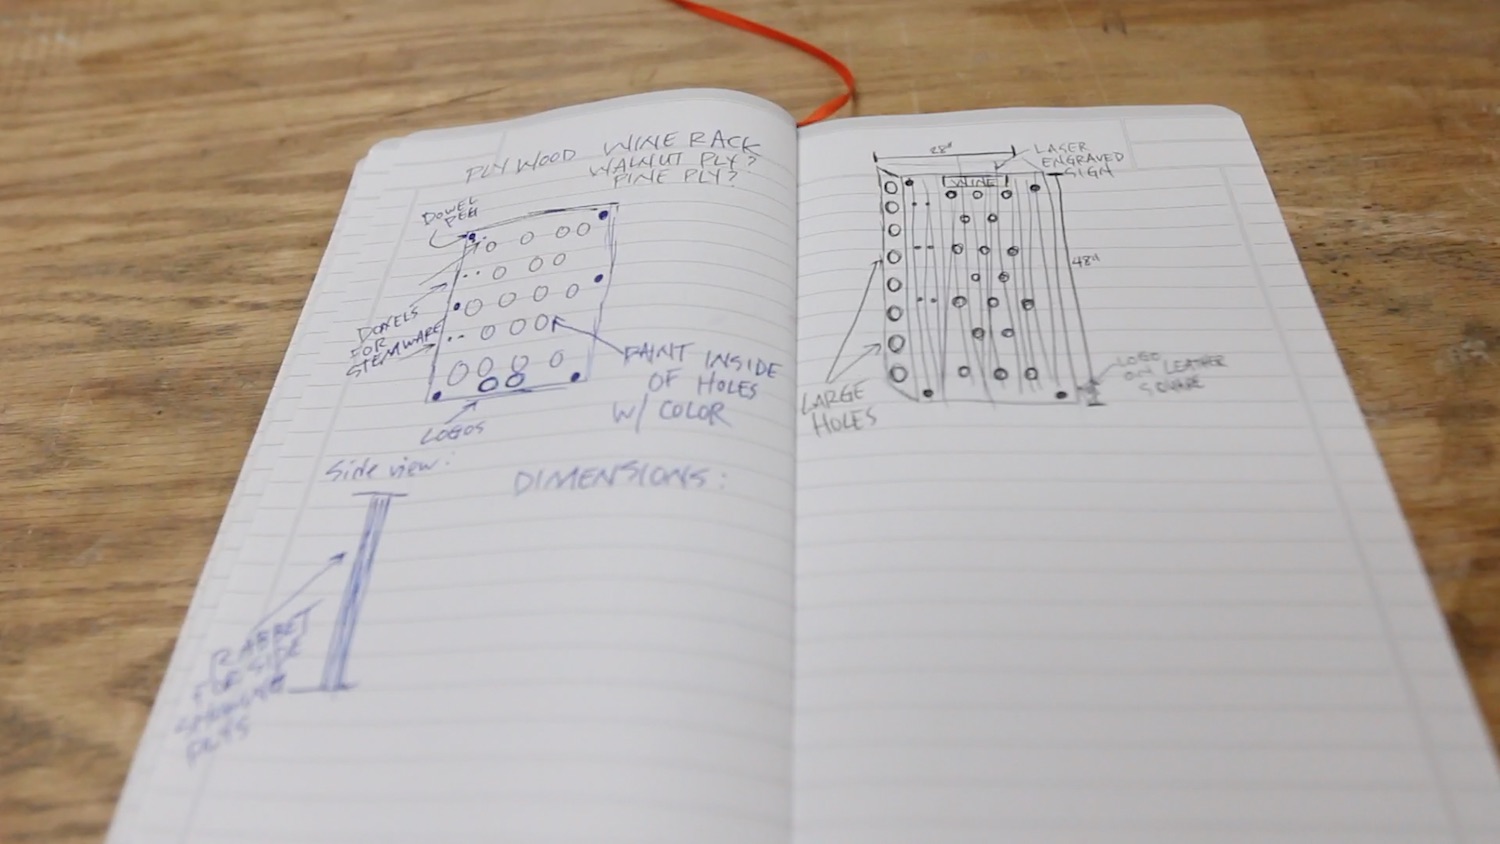 PLYWOOD WINE RACK
WALNUT PLY?
PINE PLY?
DOWEL
PEG
DOWELS
FOR
STEMWARE
PAINT INSIDE
OF HOLES
W/ COLOR
LOGOS
Side view:
DIMENSIONS:
FOR SIDE
PLYS
28"
LASER
ENGRAVED
SIGN
WINE
48"
LARGE
HOLES
LOGO
ON LEATHER
SQUARE